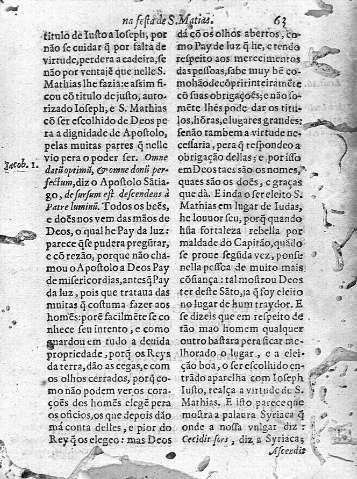 na festa de S. Matias.
63
titulo de Iusto a Ioseph, por
não se cuidar q̃ por falta de
virtude, perdera a cadeira, se
não por ventajẽ que nelle S.
Mathias lhe fazia: assim fi-
cou cõ titulo de justo, auto-
rizado Ioseph, e S. Mathias
cõ ser escolhido de Deos pe
ra a dignidade de Apostolo,
pelas muitas partes q̃ nelle
vio pera o poder ser. Omne
Jacob. 1.
datũ optimũ, & omne donũ per-
fectum, diz o Apostolo Sãtia-
go, de sursum est descendens à
Patre luminũ. Todos os bẽs,
e doẽs nos vem das mãos de
Deos, o qual he Pay da luz: e
parece q̃ se pudera pregũtar,
e cõ rezão, porque não cha-
mou o Apostolo a Deos Pay
de misericordias, antes q̃ Pay
da luz, pois que trataua das
muitas q̃ costuma fazer aos
homẽs: porẽ facilmẽte se co
nhece seu intento, e como
guardou em tudo a deuida
propriedade, porq̃ os Reys
da terra, dão as cegas, e com
os olhos cerrados, porq̃ co-
mo não podem ver os cora-
çoẽs dos homẽs elegẽ pera
os oficios, os que depois dão
má conta delles, e pior do
Rey q̃ os elegeo: mas Deos
dá cõ os olhos abertos, co-
mo Pay de luz q̃ he, e tendo
respeito aos merecimentos
das pessoas, sabe muy bẽ co-
mo hão de cõprir inteiramẽte
cõ suas obrigaçoẽs; e não so-
mẽte lhes póde dar os titu-
los, hõras, e lugares grandes:
senão tambem a virtude ne-
cessaria, pera q̃ respondeo a
obrigação delles; e por isso
em Deos taes são os nomes,
quaes são os doẽs, e graças
que dà. E inda o ser eleito S.
Mathias em lugar de Iudas,
he louuor seu, porq̃ quando
hũa fortaleza rebella por
maldade do Capitão, quãdo
se proue segũda vez, ponse
nella pessoa de muito mais
cõfiança: tal mostrou Deos
ter deste Sãto, ja q̃ foy eleito
no lugar de hum traydor. E
se dizeis que em respeito de
tão mao homem qualquer
outro bastara pera ficar me-
lhorado o lugar, e a elei-
ção boa, o ser escolhido en-
trãdo aparelha com Ioseph
Iusto, realça a virtude de S.
Mathias. E isto parece que
mostra a palaura Syriaca q̃
onde a nossa vulgar diz:
Cecidit sors, diz a Syriaca;
Ascendit